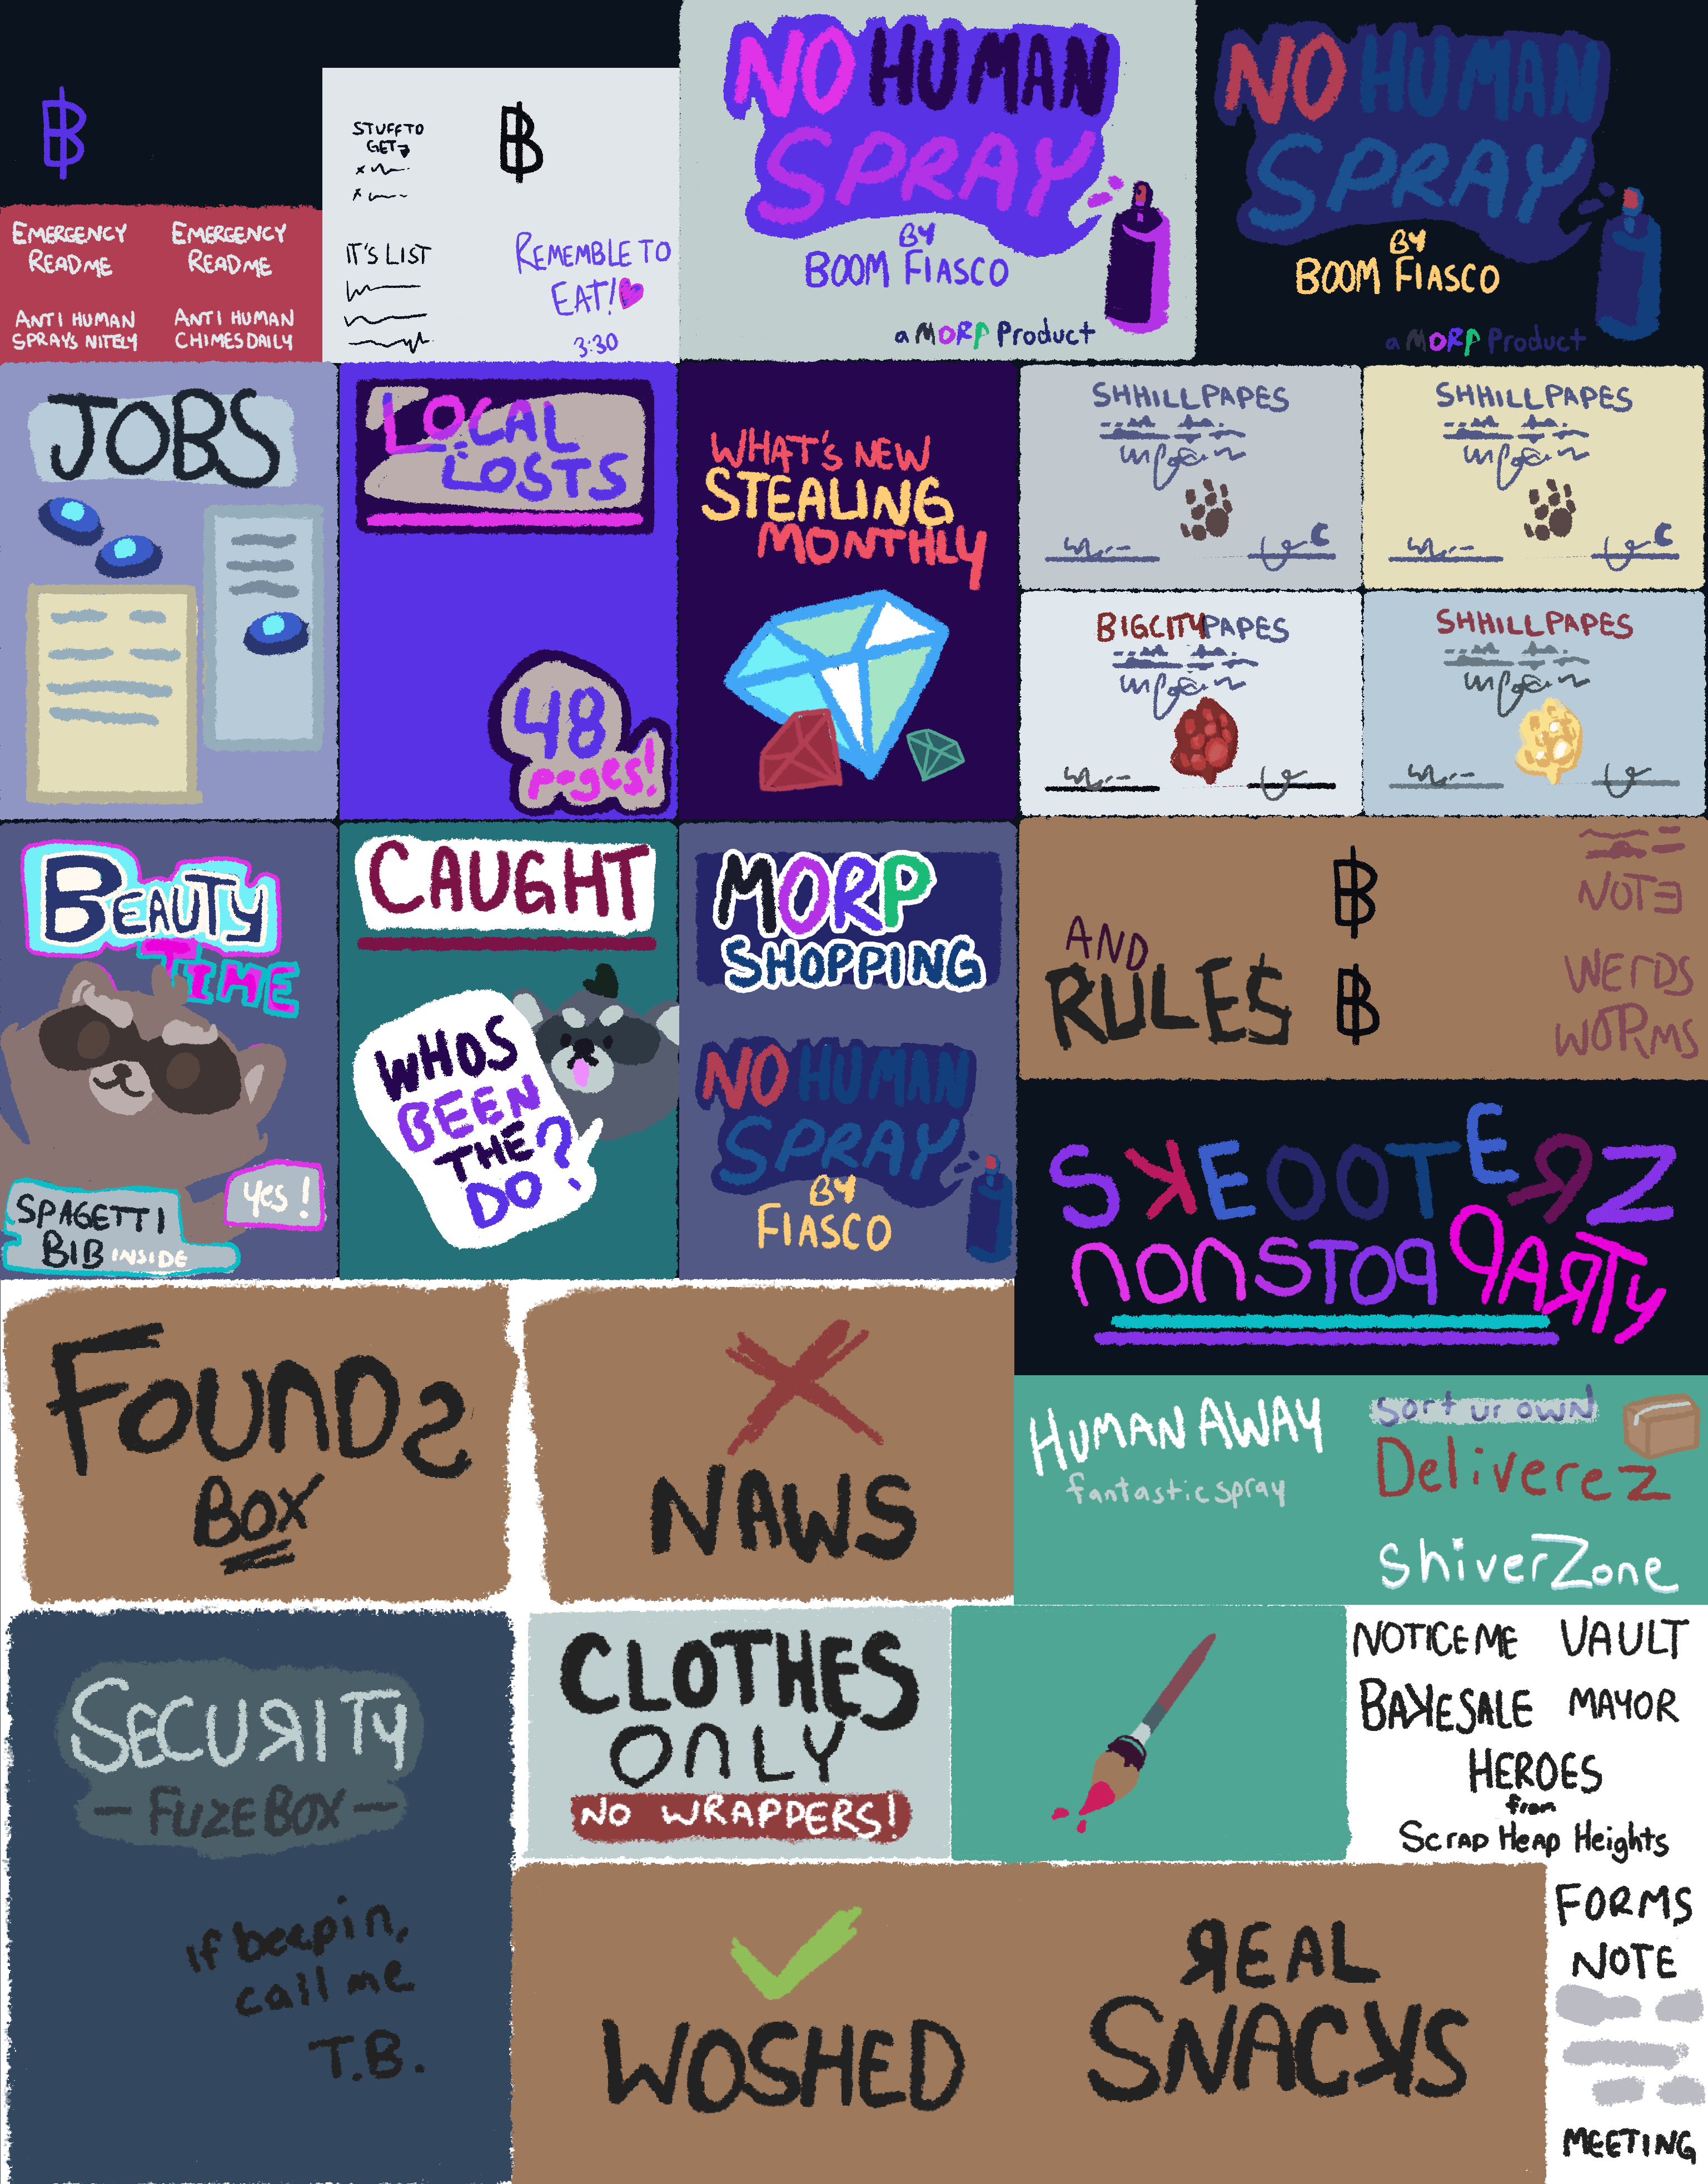 EMERGENCY
README
ANTI HUMAN
SPRAYS NITELY
EMERGENCY
README
ANTI HUMAN
CHIMES DAILY
STUFF TO
GET
IT'S LIST
REMEMBLE TO
EAT!
3:30
NO HUMAN
SPRAY
BY
BOOM FIASCO
a MORP Product
NO HUMAN
SPRAY
BY
BOOM FIASCO
a MORP Product
JOBS
LOCAL
LOSTS
48
pages!
WHAT'S NEW
STEALING
MONTHLY
SHHILLPAPES
SHHILLPAPES
BIGCITYPAPES
SHHILLPAPES
BEAUTY
TIME
SPAGETTI
BIB INSIDE
Yes!
CAUGHT
WHOS
BEEN
THE
DO?
MORP
SHOPPING
NO HUMAN
SPRAY
BY
FIASCO
AND
RULES
NOTE
WERDS
WORMS
SKEOOTERZ
NONSTOP PARTY
FOUNDS
BOX
NAWS
HUMAN AWAY
fantastic spray
Sort ur own
Deliverez
ShiverZone
SECURITY
- FUZEBOX -
if beepin,
call me
T.B.
CLOTHES
ONLY
NO WRAPPERS!
NOTICEME
VAULT
BAKESALE
MAYOR
HEROES
from
Scrap Heap Heights
WOSHED
REAL
SNACKS
FORMS
NOTE
MEETING